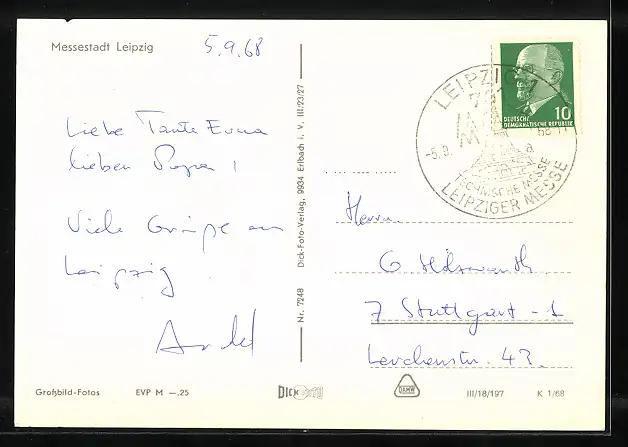 Messestadt Leipzig
5.9.68
Liebe Tante Erna
lieber Papa !
Viele Grüße aus
Leipzig
Nr. 7248 Dick-Foto-Verlag, 9934 Erlbach i. V. III/23/27
LEIPZIG
-5.9.
68-11
a
TECHNISCHE MESSE
LEIPZIGER MESSE
10
DEUTSCHE
DEMOKRATISCHE REPUBLIK
Herrn
G
7 Stuttgart - 1
Lerchenstr. 42
Großbild-Fotos EVP M —.25
DICK FOTO
III/18/197 K 1/68